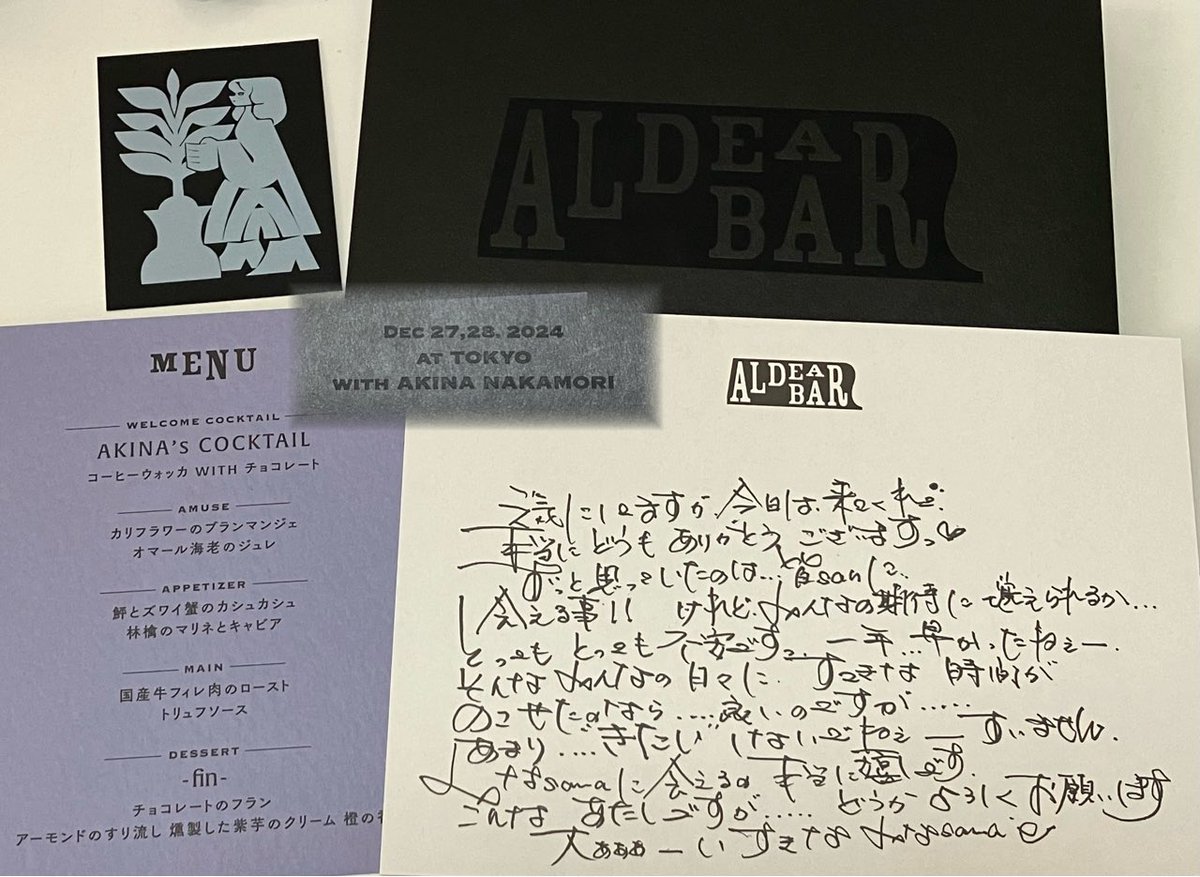 ALDEA BAR
DEC 27,28. 2024
AT TOKYO
WITH AKINA NAKAMORI
MENU
WELCOME COCKTAIL
AKINA's COCKTAIL
コーヒーウォッカ WITH チョコレート
AMUSE
カリフラワーのブランマンジェ
オマール海老のジュレ
APPETIZER
鮃とズワイ蟹のカシュカシュ
林檎のマリネとキャビア
MAIN
国産牛フィレ肉のロースト
トリュフソース
DESSERT
-fin-
チョコレートのフラン
アーモンドのすり流し 燻製した紫芋のクリーム 橙の
ALDEA BAR
元気にしてますか、今日は、来てくれて
本当にどうもありがとうございますっ♡
ずっと思っていたのは... 皆sanに、
会える事!! けれど、みんなの期待に
とってもとっても不安です。一年...早かったねぇー.
そんなみんなの日々に、すてきな時間が
のこせたのなら.....良いのですが.....
あまり....きたいしないでねぇーすいません.
みなsamaに会えるの本当に嬉しいです.
こんなあたしですが..... どうかよろしくお願いします
大ぁぁぁーいすきなみなsamaへ